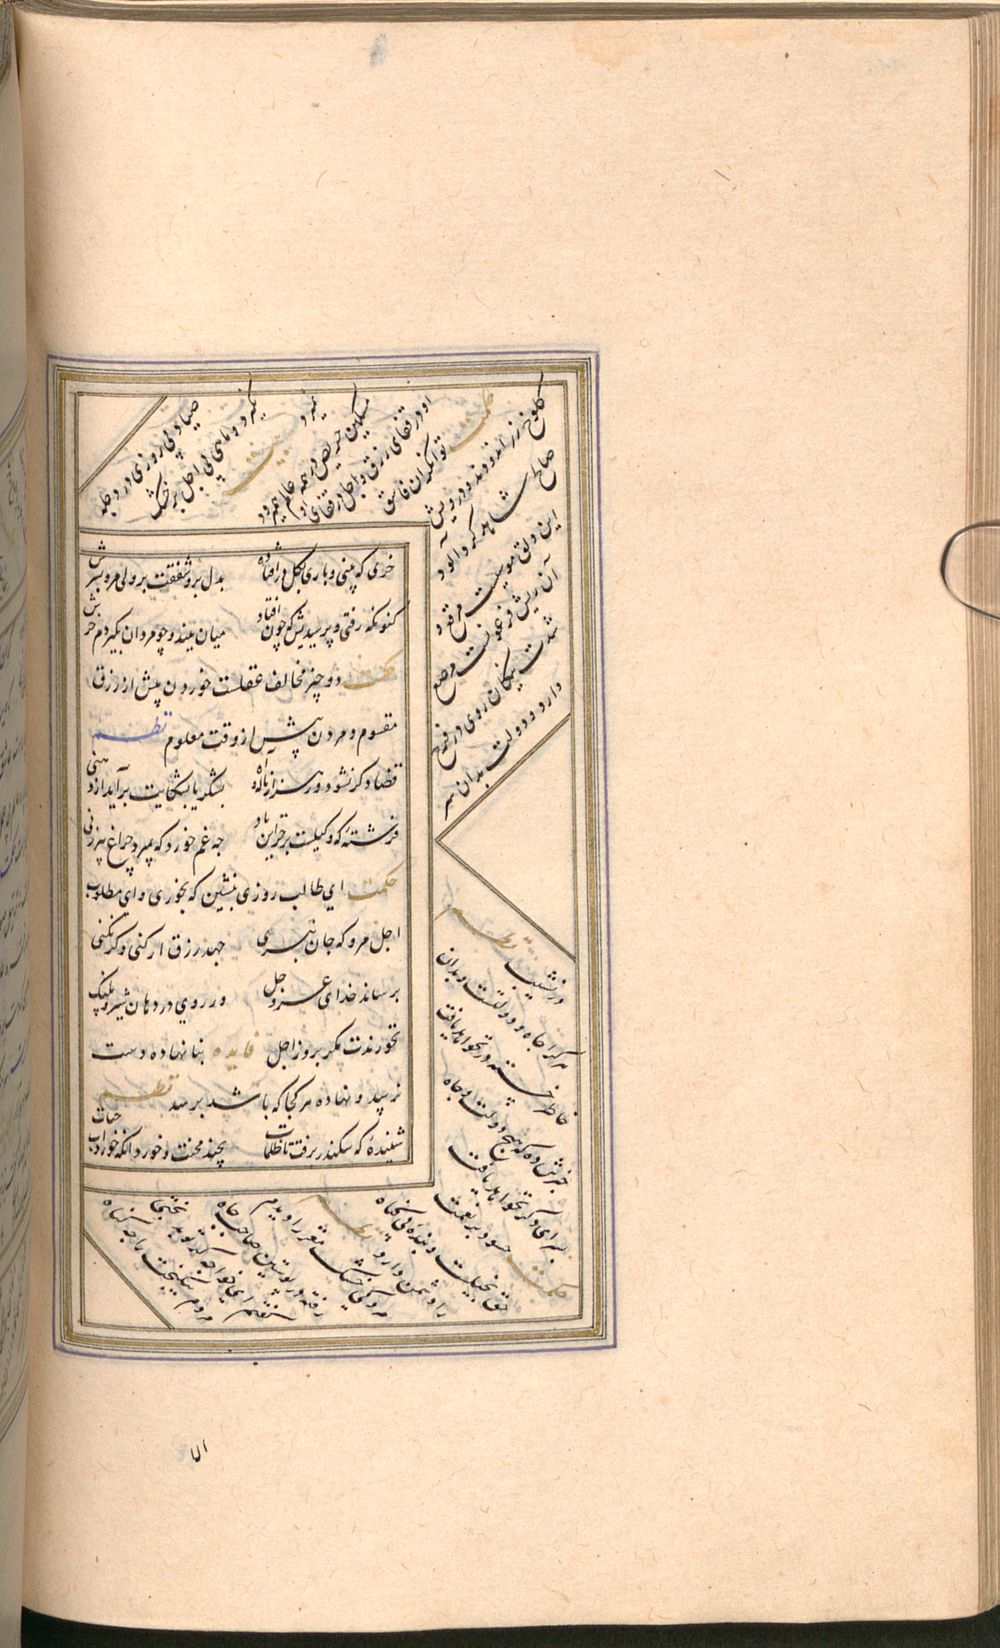 خری که بینی و باری بکل در افتاده
بدل برو شفقت بر ولی مرو بسرش
کنونکه رفتی و پرسیدیش که چون افتاد
میان ببند و چو مردان بکیر دم خرش
حکمت دو چیز مخالف عقلست خوردن پیش از رزق
مقسوم و مردن پیش از وقت معلوم نظم
قضا دکر نشود ور هزار ناله و آه
بشکر یا بشکایت برآید از دهنی
فرشتهٔ که وکیلست بر خزاین باد
چه غم خورد که بمیرد چراغ پیرزنی
حکمت ای طالب روزی بنشین که بخوری و ای مطلوب
اجل مرو که جان نبری
جهد رزق ار کنی و کر نکنی
برساند خدای عز و جل
ور روی در دهان شیر و پلنک
نخورندت مکر بروز اجل
فایده بنا نهاده دست
نرسد و نهاده هر کجا که باشد برسد نظم
شنیدهٔ که سکندر برفت تا ظلمات
بچند محنت و خورد آنکه خورد آب حیات
صیاد بی روزی در دجله
نکیرد و ماهی بی اجل بر خشک
نمیرد بیت
مسکین حریص در همه عالم همی رود
او در قفای رزق و اجل در قفای او
حکمت توانکران فاسق
کلوخ زر اندودند و درویش
صالح شاهد کرد آلود
این دلق موسیست مرقع و
آن ریش فرعونست مرصع
شدت نیکان روی در فرج
دارد و دولت بدان سر
در نشیب نظم
هر کرا جاه و دولتست و بدان
خاطر خسته در نخواهد یافت
خبرش ده که هیچ دولت و جاه
بسرای دکر نخواهد یافت
حکمت حسود بر نعمت
حق بخیلست و بنده بی کناه
را دشمن دارد
مردکی خشک مغز را دیدم
رفته در پوستین صاحب جاه
کفتم ای خواجه کر تو بدبختی
مردم نیکبخت را چه کناه
۷۱